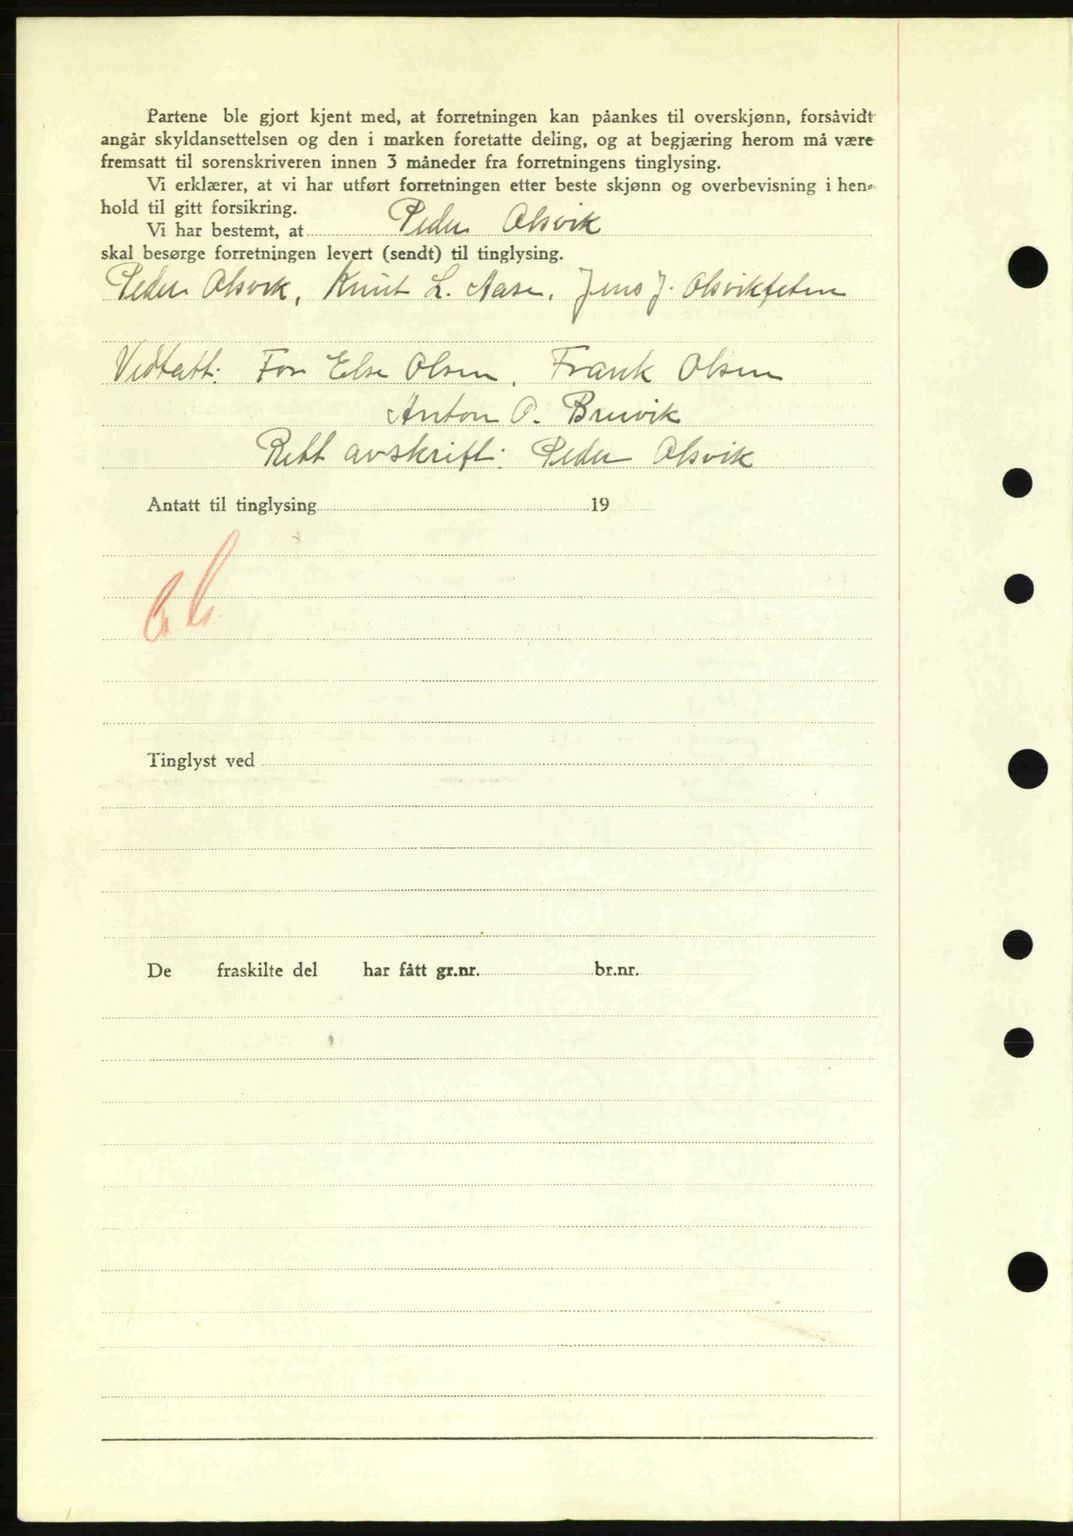 Partene ble gjort kjent med, at forretningen kan påankes til overskjønn, forsåvidt
angår skyldansettelsen og den i marken foretatte deling, og at begjæring herom må være
fremsatt til sorenskriveren innen 3 måneder fra forretningens tinglysing.
Vi erklærer, at vi har utført forretningen etter beste skjønn og overbevisning i hen-
hold til gitt forsikring.
Vi har bestemt, at Peder Alsvik
skal besørge forretningen levert (sendt) til tinglysing.
Peder Alsvik, Knut L. Aase, Jens J. Alsvikfeten
Vedtatt: For Else Olsen, Frank Olsen
Anton P. Bruvik
Rett avskrift: Peder Alsvik
Antatt til tinglysing 19
Tinglyst ved
De fraskilte del har fått gr.nr. br.nr.